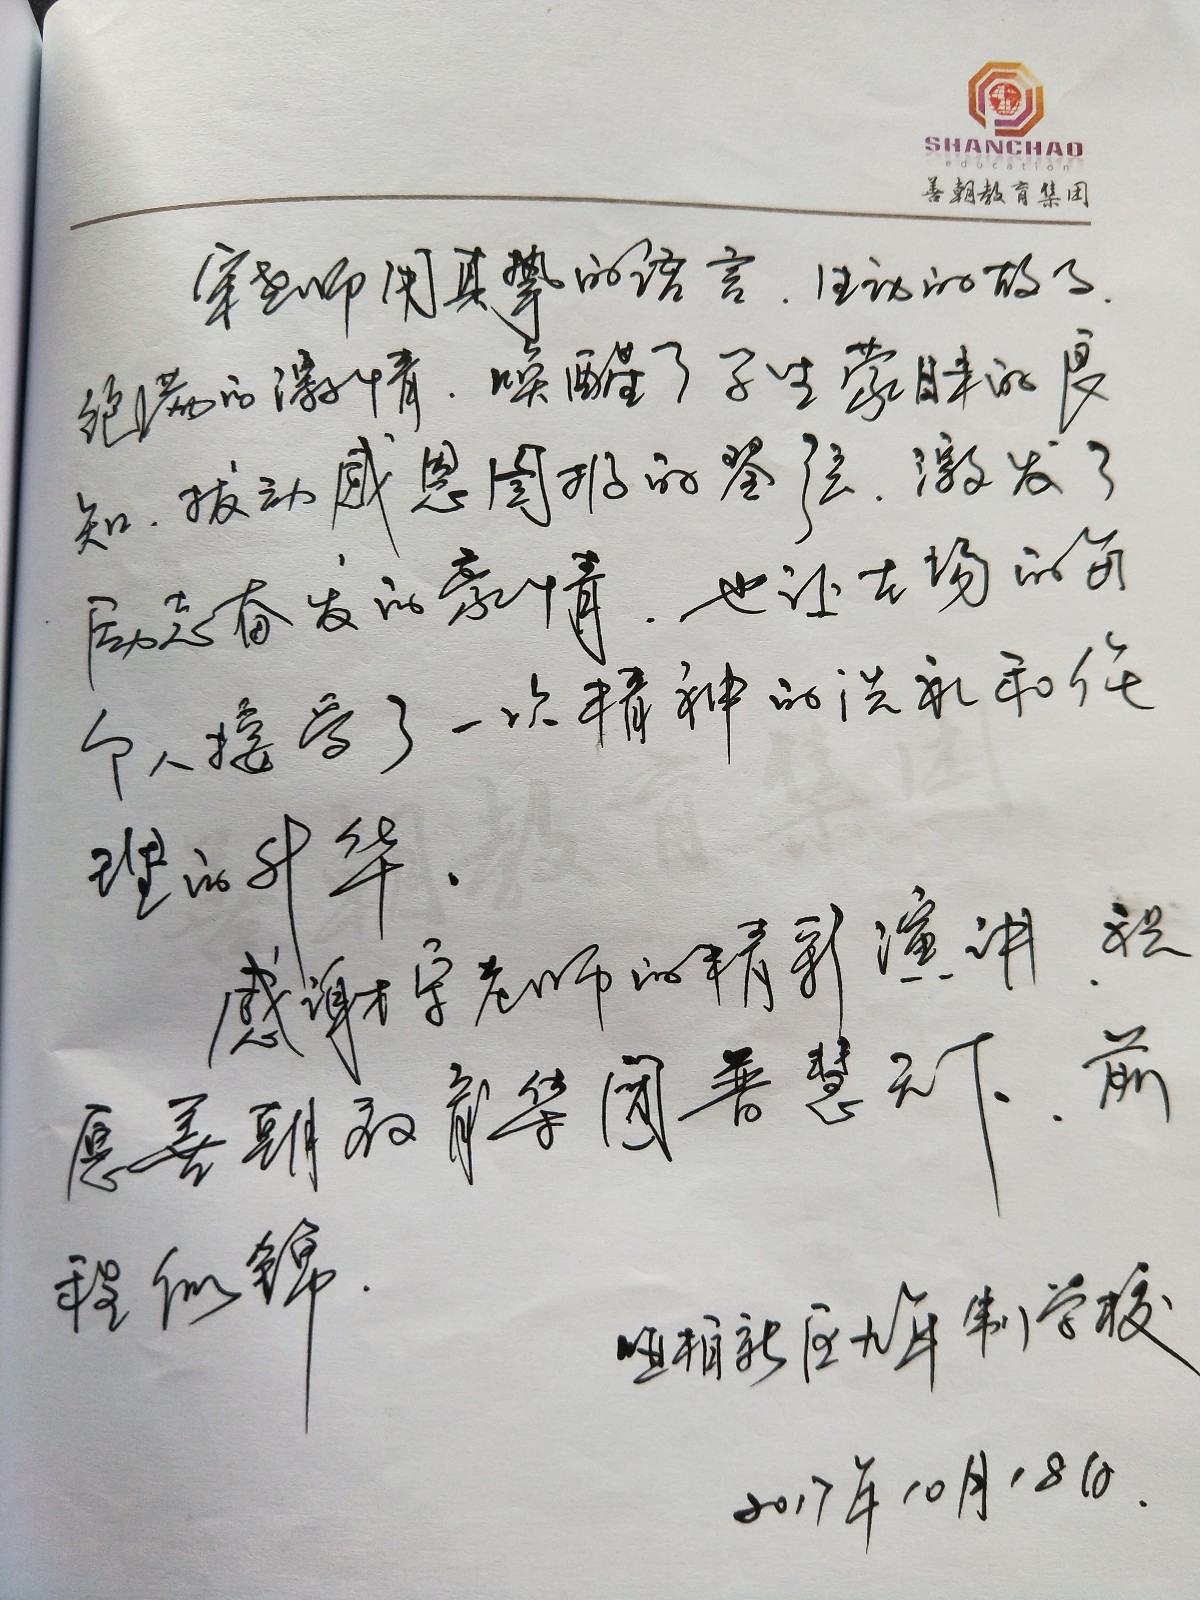 SHANCHAO
education
善朝教育集团
老师用真挚的语言,生动的故事,
饱满的激情,唤醒了学生蒙昧的良
知,拨动感恩图报的琴弦,激发了
励志奋发的豪情,也让在场的每
个人接受了一次精神的洗礼和
理的升华.
感谢老师的精彩演讲,祝
愿善朝教育集团普慧天下,前
程似锦.
相新区九年制学校
2017年10月18日.
善朝教育集团